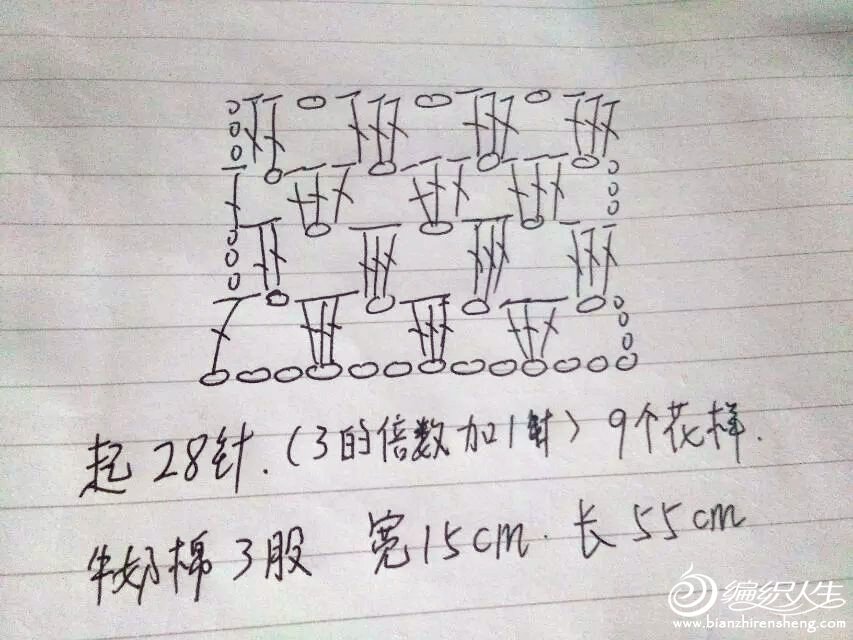 起28针.(3的倍数加1针)9个花样.
牛奶棉3股 宽15cm.长55cm
编织人生
www.bianzhirensheng.com